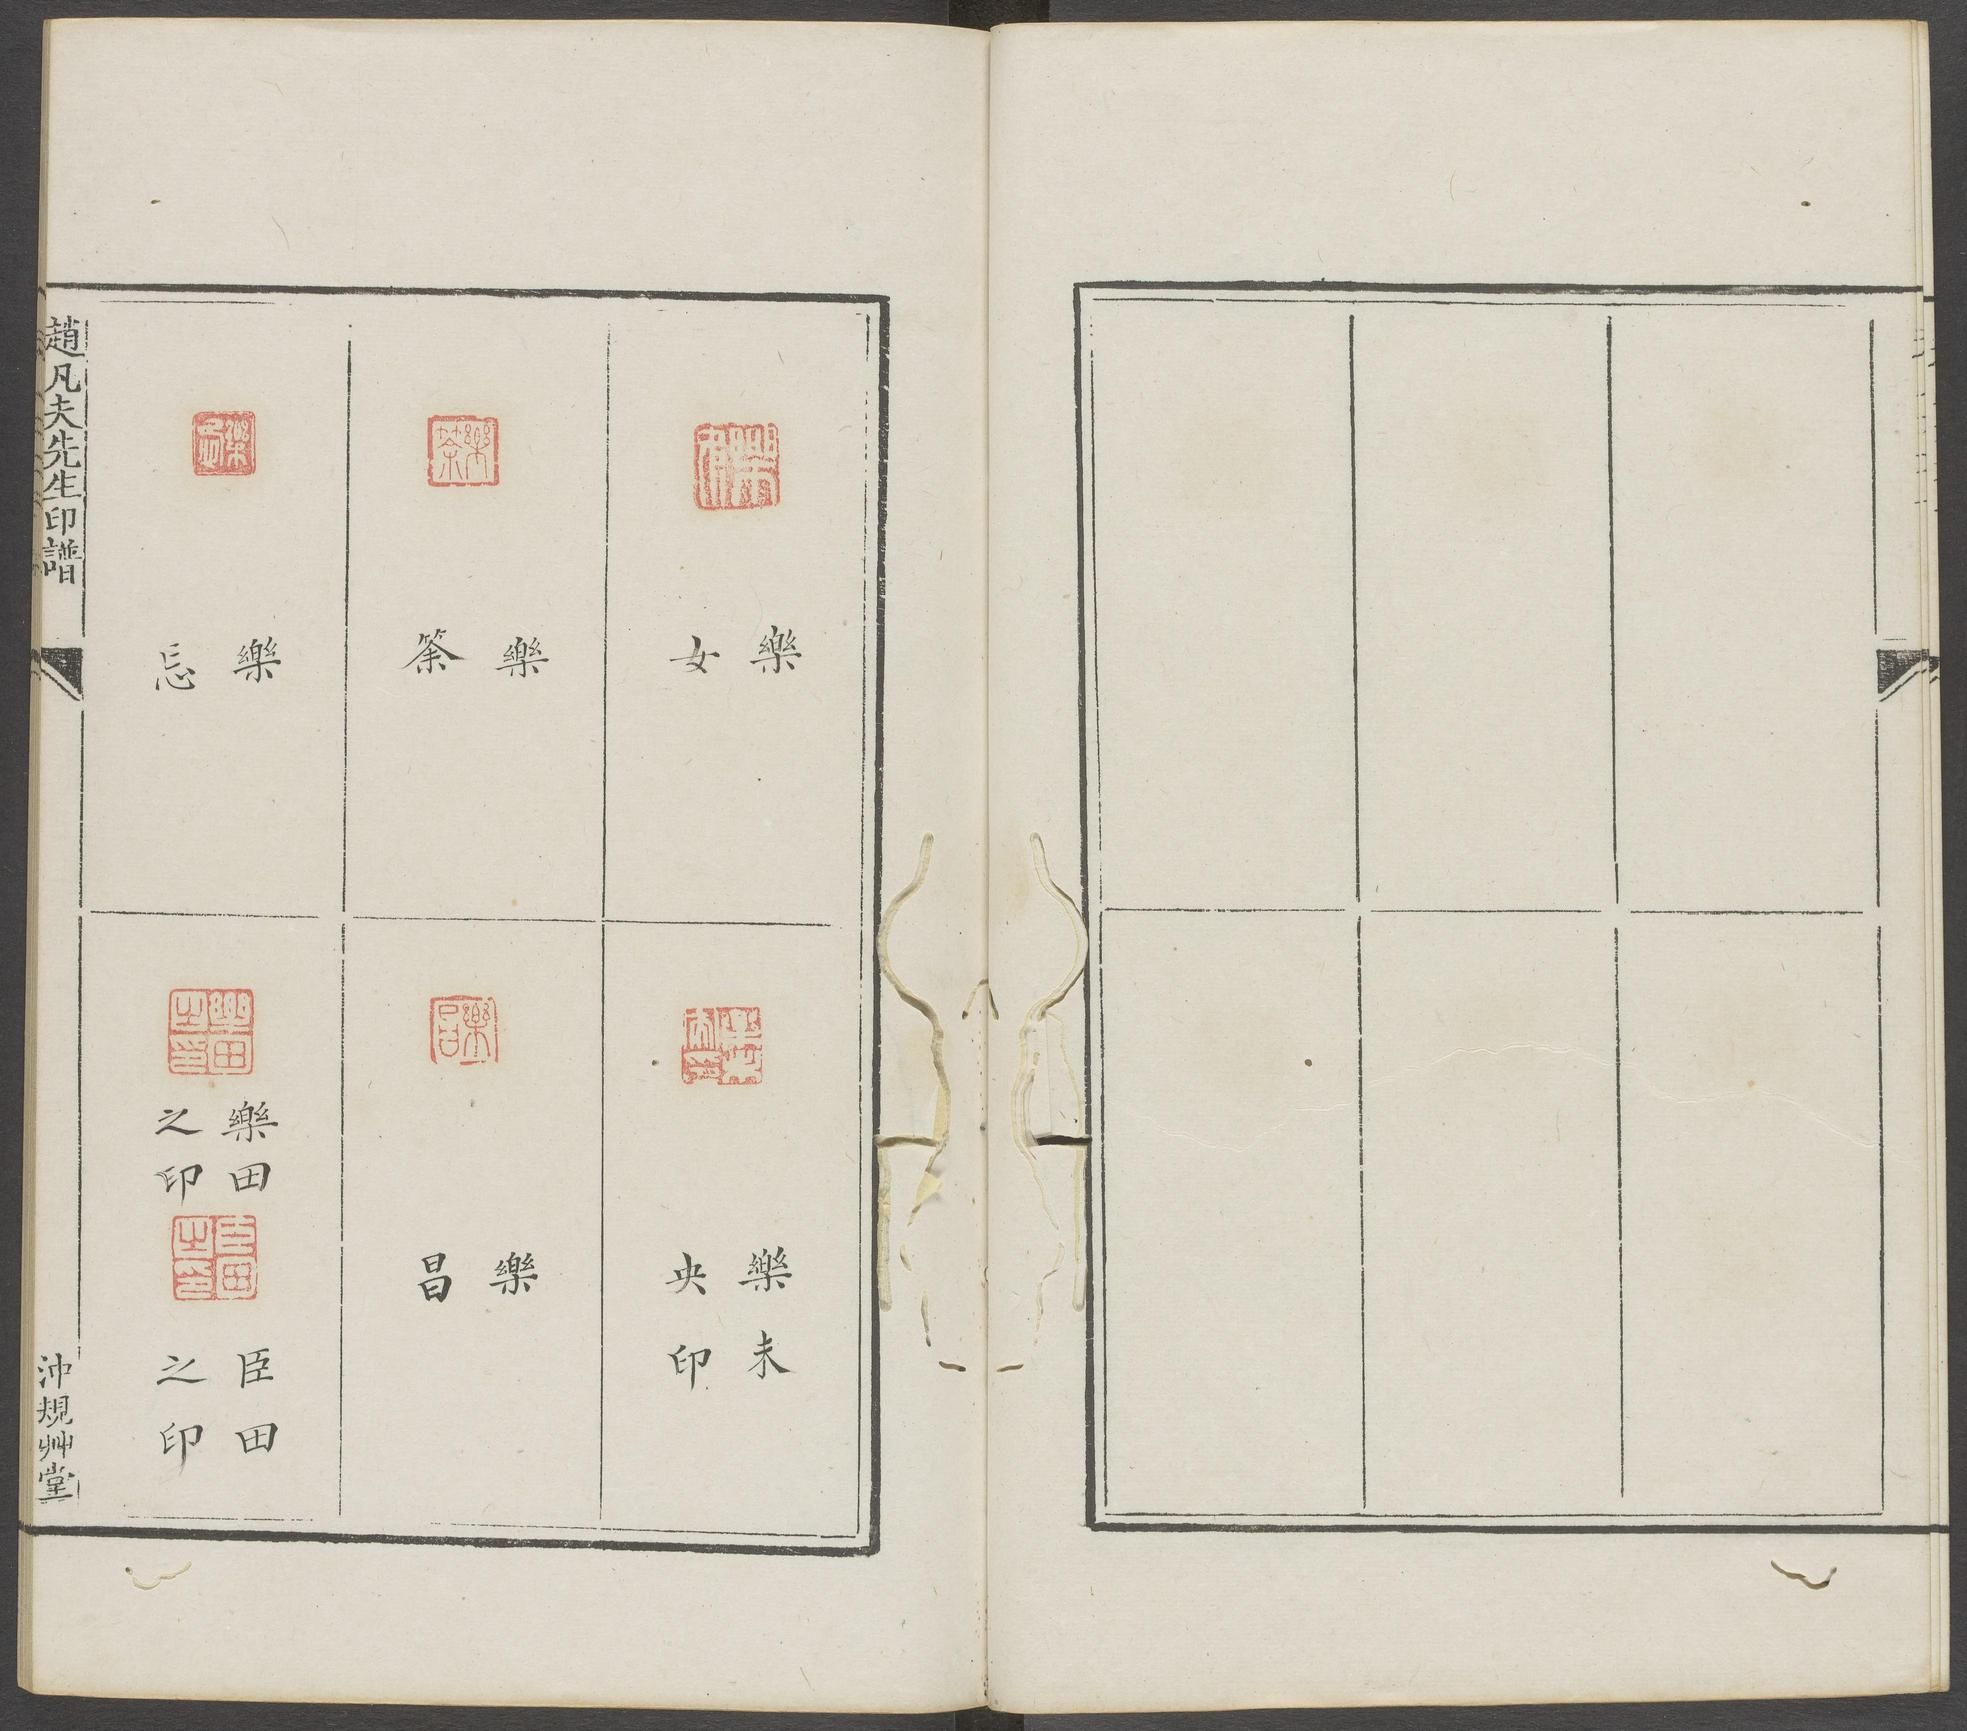 樂女
樂未央印
樂䇲
樂昌
樂忘
樂田之印
臣田之印
趙凡夫先生印譜
沖規艸堂